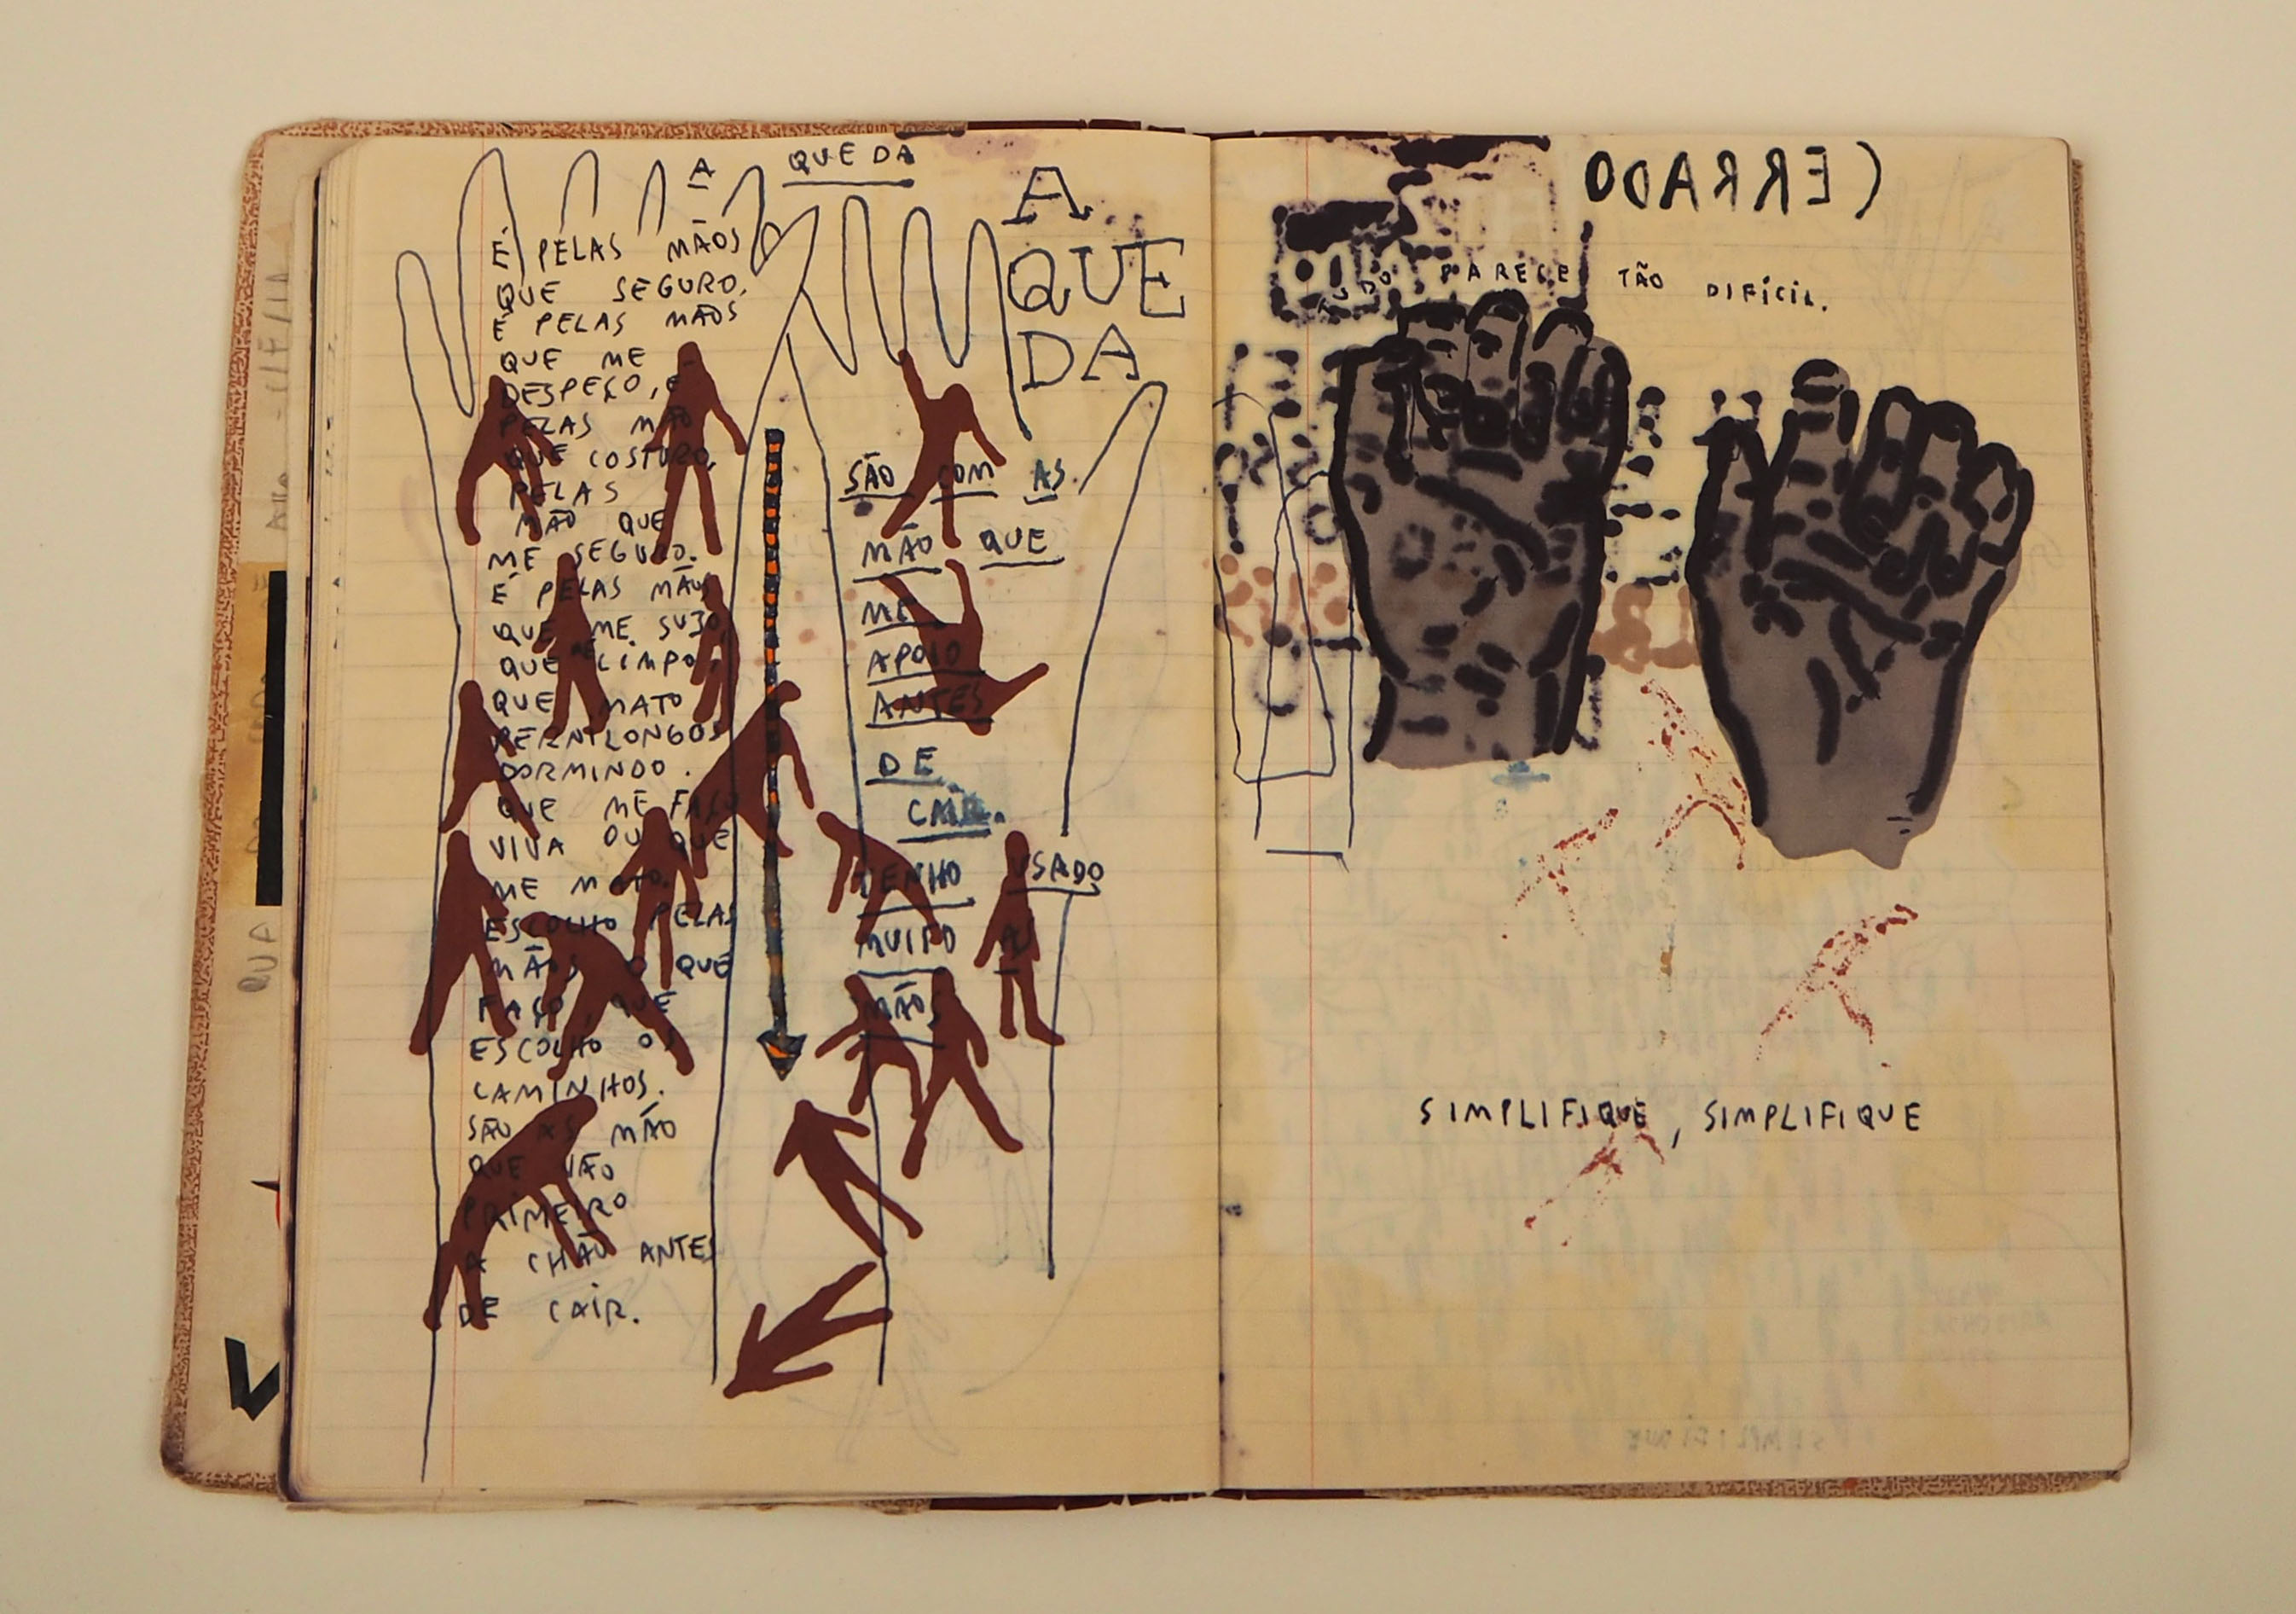 A QUEDA
A
QUE
DA
É PELAS MÃOS
QUE SEGURO,
É PELAS MÃOS
QUE ME
DESPEÇO, É
PELAS MÃO
QUE COSTURO,
PELAS
MÃO QUE
ME SEGURO.
É PELAS MÃOS
QUE ME SUJO,
QUE ME LIMPO,
QUE MATO
PERNILONGOS
DORMINDO.
QUE ME FAÇO
VIVA OU QUE
ME MATO.
ESCOLHO PELAS
MÃOS O QUE
FAÇO, QUE
ESCOLHO OS
CAMINHOS.
SÃO AS MÃO
QUE VÃO
PRIMEIRO
A CHÃO ANTES
DE CAIR.
SÃO COM AS
MÃO QUE
ME
APOIO
ANTES
DE
CAIR.
TENHO USADO
MUITO AS
MÃOS
CERRADO
TUDO PARECE TÃO DIFÍCIL.
SIMPLIFIQUE, SIMPLIFIQUE